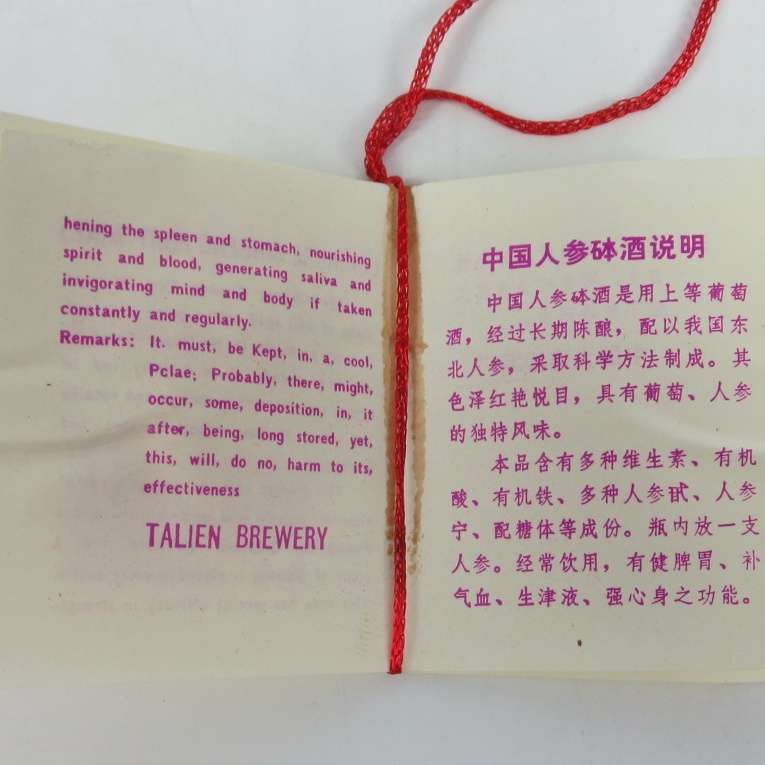 hening the spleen and stomach, nourishing
spirit and blood, generating saliva and
invigorating mind and body if taken
constantly and regularly.
Remarks: It. must, be Kept, in, a, cool,
Pclae; Probably, there, might,
occur, some, deposition, in, it
after, being, long stored, yet,
this, will, do no, harm to its,
effectiveness
TALIEN BREWERY
中国人参砵酒说明
中国人参砵酒是用上等葡萄
酒，经过长期陈酿，配以我国东
北人参，采取科学方法制成。其
色泽红艳悦目，具有葡萄、人参
的独特风味。
本品含有多种维生素、有机
酸、有机铁、多种人参甙、人参
宁、配糖体等成份。瓶内放一支
人参。经常饮用，有健脾胃、补
气血、生津液、强心身之功能。